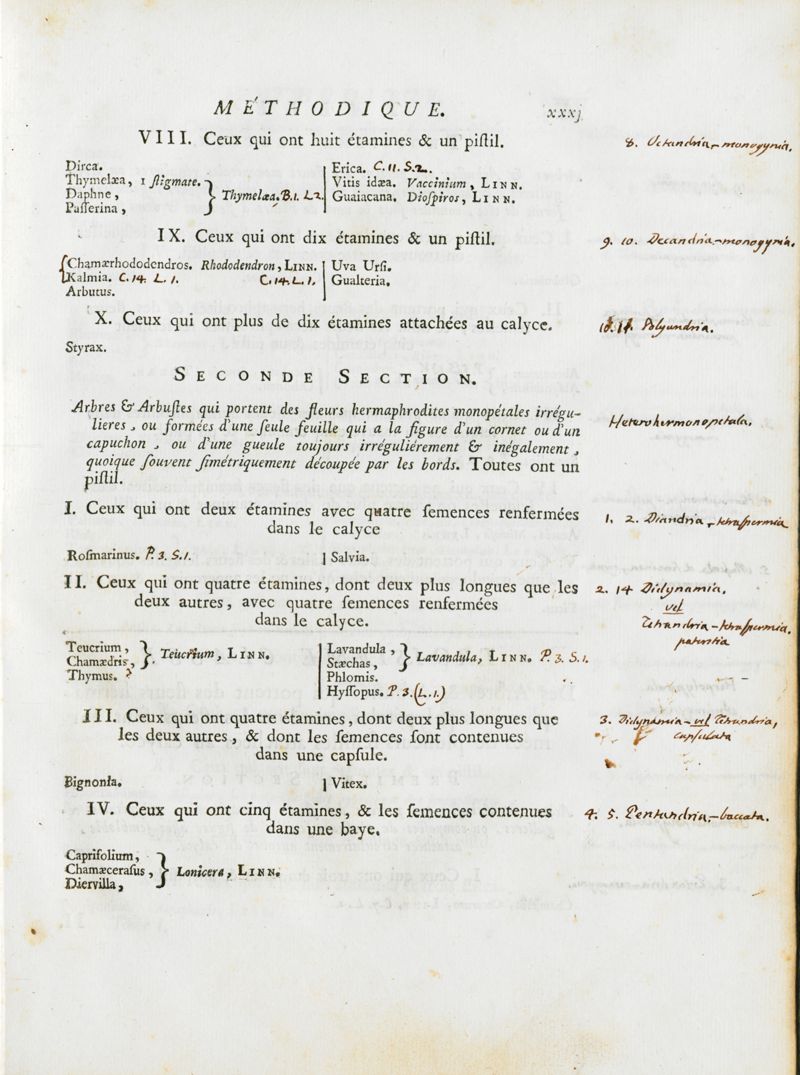 MÉTHODIQUE. xxxj
VIII. Ceux qui ont huit étamines & un piſtil. 8. Octandria-monogynia.
Dirca.
Thymelæa, 1 ſtigmate.
Daphne,
Paſſerina,
Thymelæa. B.1. L2.
Erica. C.11. S.2.
Vitis idæa. Vaccinium, LINN.
Guaiacana. Dioſpiros, LINN.
IX. Ceux qui ont dix étamines & un piſtil. 9. 10. Decandria-monogynia.
Chamærhododendros. Rhododendron, LINN.
Kalmia. C.14. L.1. C.14.L.1.
Arbutus.
Uva Urſi.
Gualteria.
X. Ceux qui ont plus de dix étamines attachées au calyce. Polyandria.
Styrax.
SECONDE SECTION.
Arbres & Arbuſtes qui portent des fleurs hermaphrodites monopétales irrégu-
lieres, ou formées d'une ſeule feuille qui a la figure d'un cornet ou d'un Heterohermonopetala.
capuchon, ou d'une gueule toujours irréguliérement & inégalement,
quoique ſouvent ſimétriquement découpée par les bords. Toutes ont un
piſtil.
I. Ceux qui ont deux étamines avec quatre ſemences renfermées 1. 2. Diandria-tetraspermia
dans le calyce
Roſmarinus. P.3. S.1.
Salvia.
II. Ceux qui ont quatre étamines, dont deux plus longues que les 2. 14 Didynamia.
deux autres, avec quatre ſemences renfermées vel
dans le calyce. Tetrandria-tetraspermia.
Teucrium,
Chamædris,
Teucrium, LINN.
Thymus.
Lavandula,
Stæchas,
Lavandula, LINN. P.3. S.1.
Phlomis.
Hyſſopus. P.3.(L.1.)
III. Ceux qui ont quatre étamines, dont deux plus longues que 3. Didynamia-vel Tetrandria,
les deux autres, & dont les ſemences ſont contenues capsulata
dans une capſule.
Bignonia.
Vitex.
IV. Ceux qui ont cinq étamines, & les ſemences contenues 4. 5. Pentandria-baccata.
dans une baye.
Caprifolium,
Chamæceraſus,
Diervilla,
Lonicera, LINN.